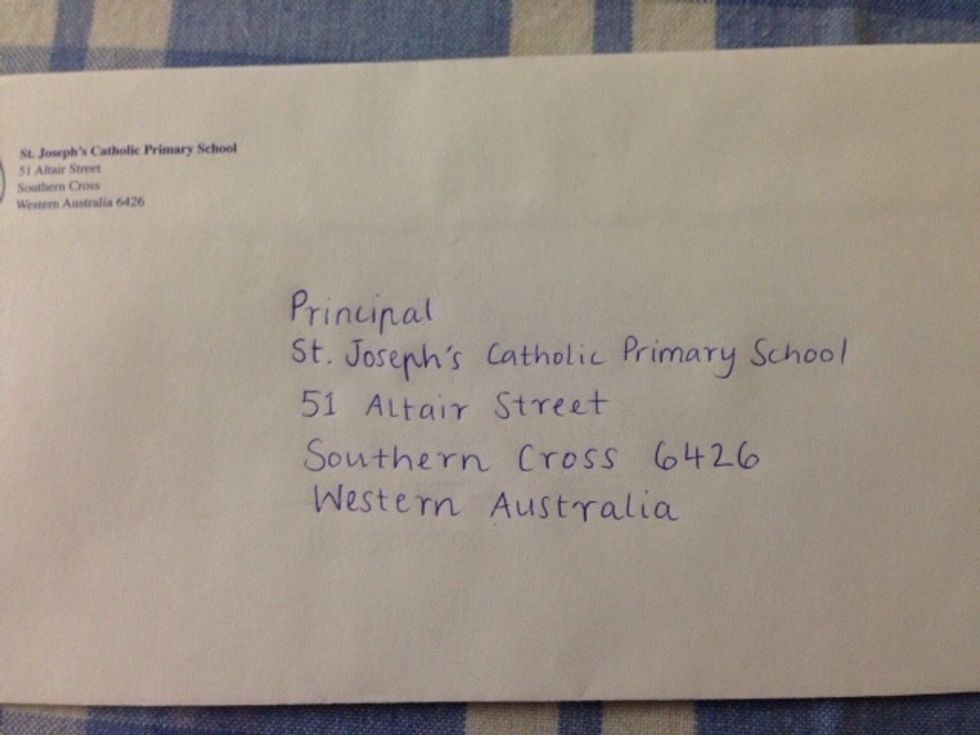 St. Joseph's Catholic Primary School
51 Altair Street
Southern Cross
Western Australia 6426
Principal
St. Joseph's Catholic Primary School
51 Altair Street
Southern Cross 6426
Western Australia